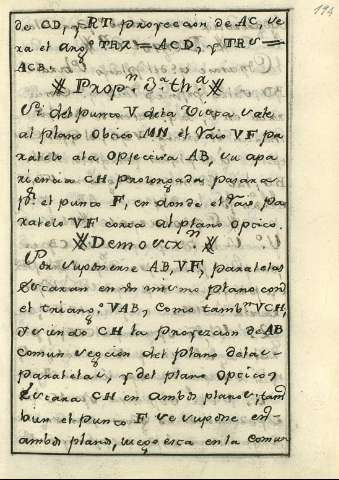 194
de CD, y RT proyeccion de AC, se
ra el ang.º TRX = ACD, y TRS =
ACB.
Prop.n 3.a th.a
Si del punto V. dela Vista sale
al plano Obtico MN el Raio VF pa
ralelo ala Objectiva AB, su apa
riencia CH prolongada pasara
p.r el punto F, en donde el Raio pa
ralelo VF corta al plano Optico.
Demostr.n
Por suponerse AB, VF, paralelas
Estaran en un mismo plano con
el triang.o VAB, como tamb.n VCH,
y siendo CH la Proyeccion de AB
comun seccion del plano delas
paralelas, y del plano Optico,
Estara CH en ambos planos; tam
bien el punto F se supone en
ambos planos, luego esta en la comun